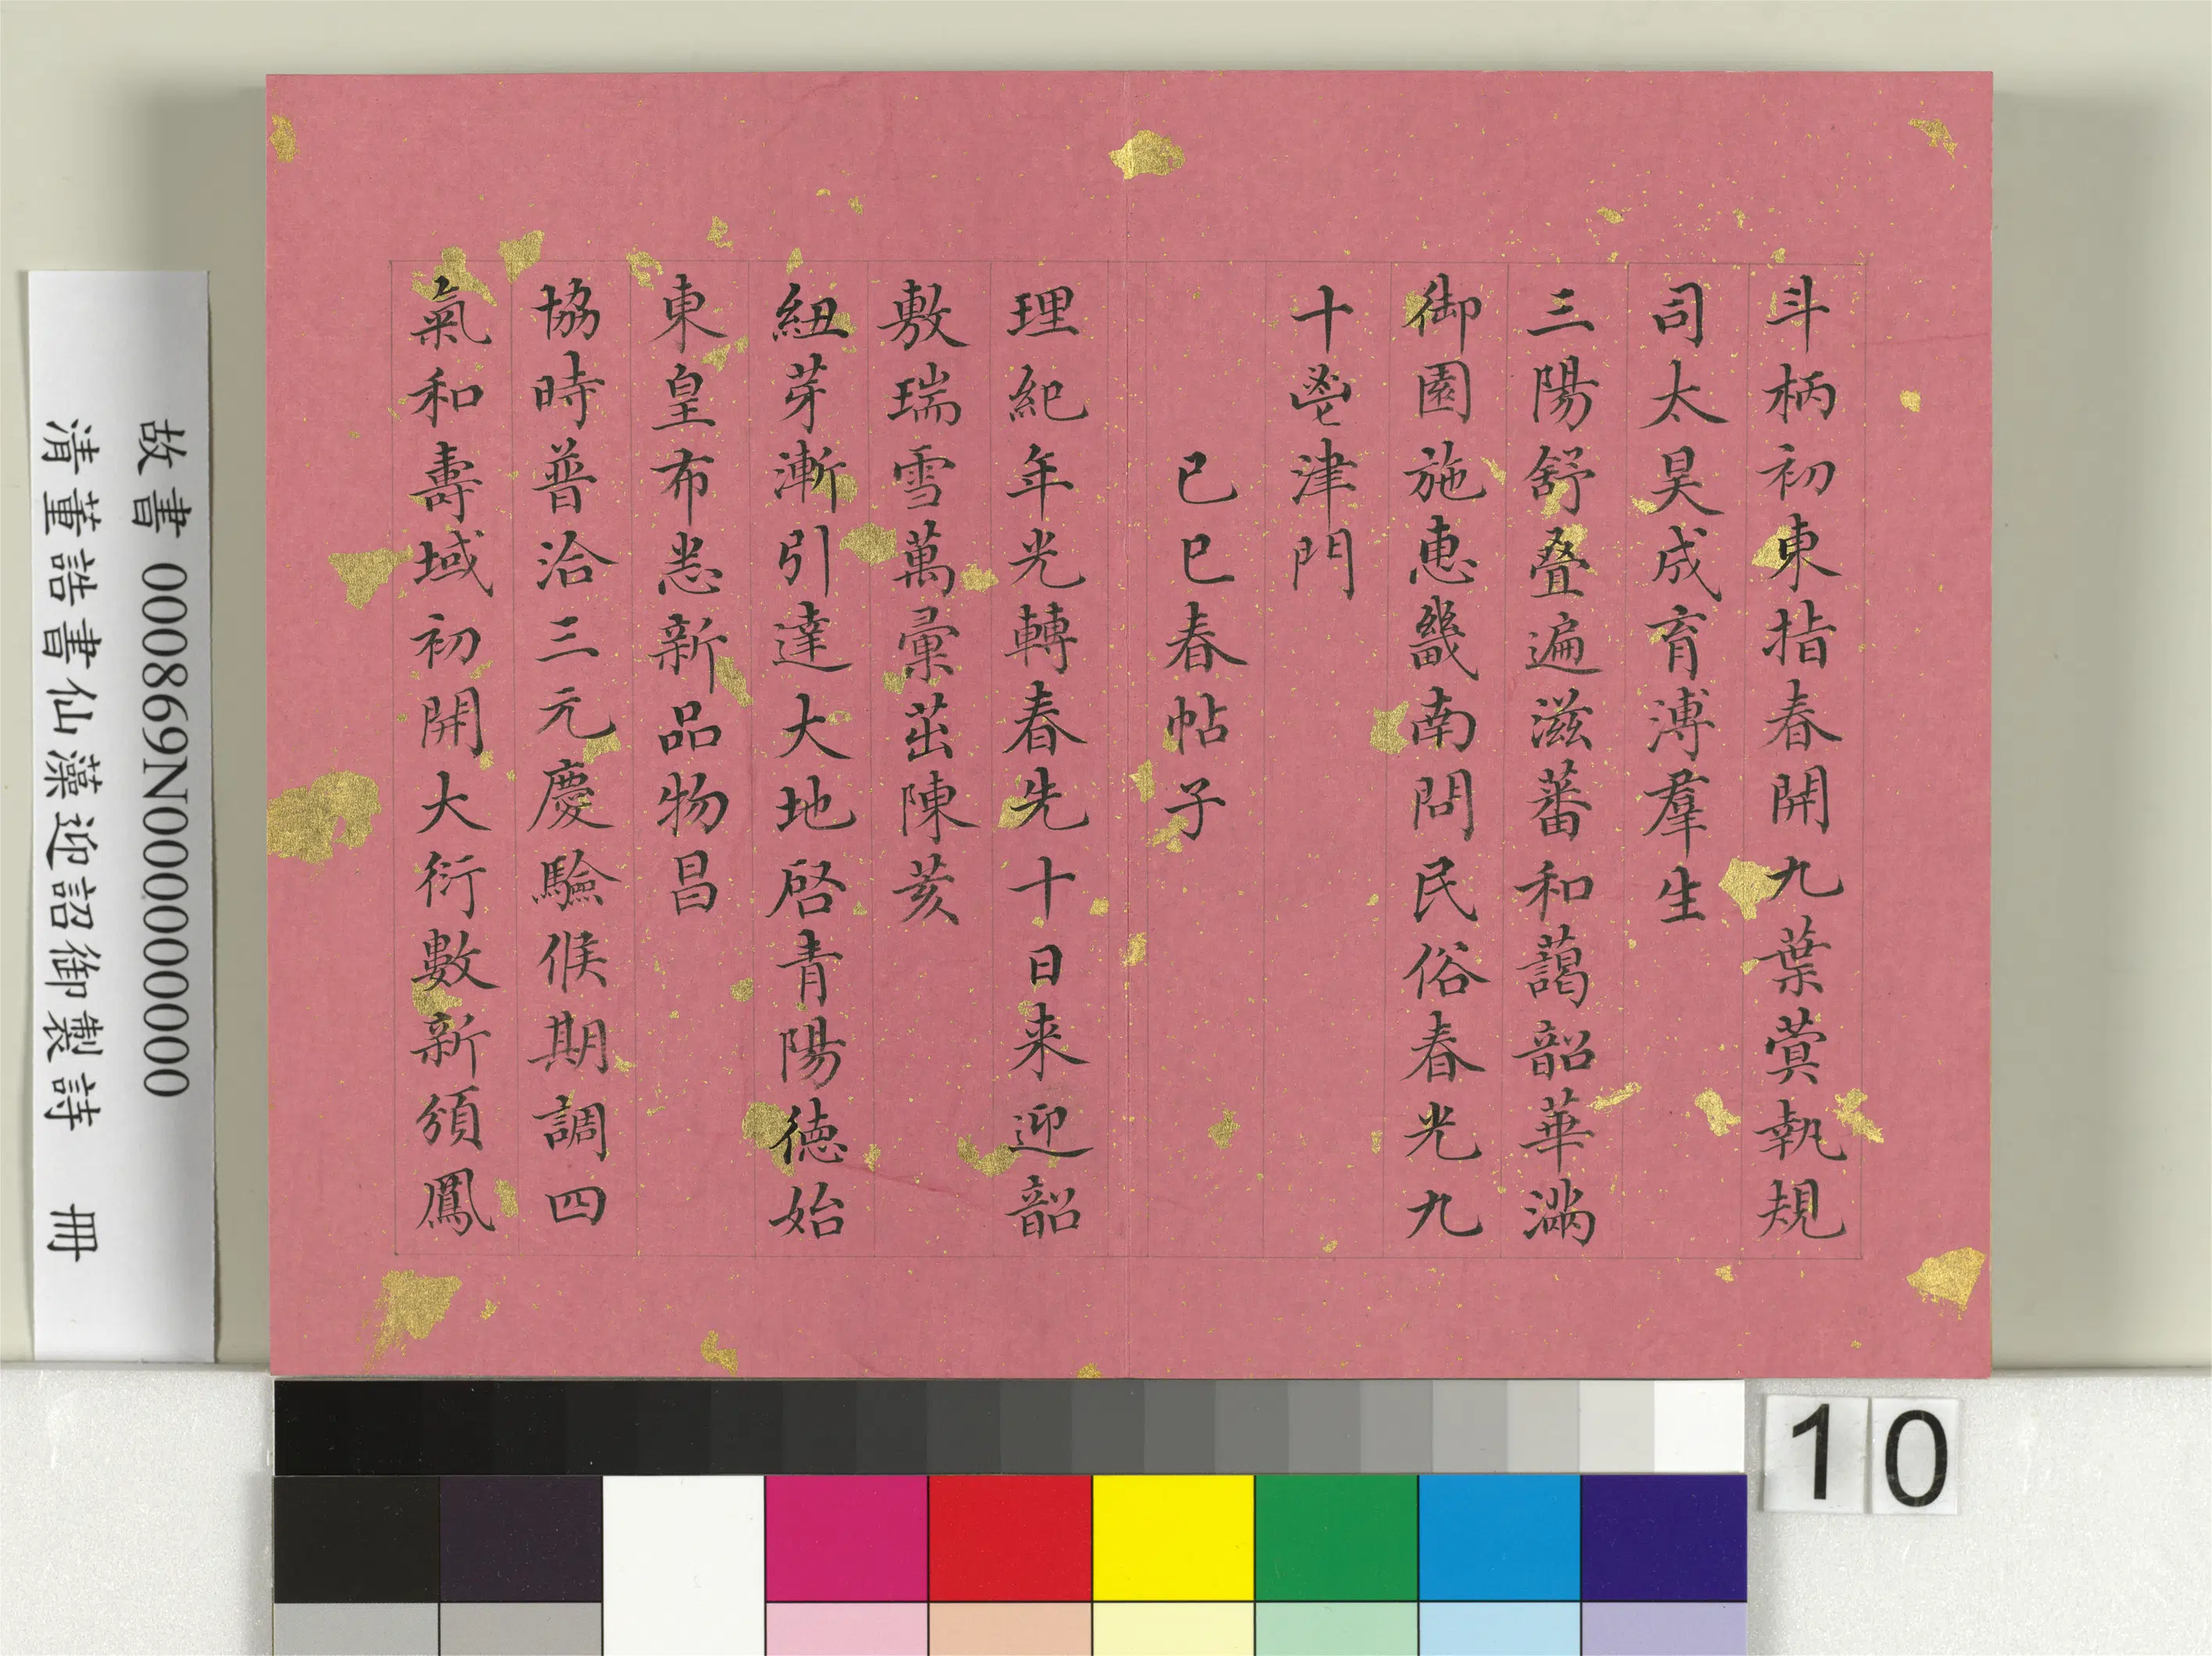 斗柄初東指春開九葉蓂執規
司太昊成育溥羣生
三陽舒叠遍滋蕃和藹韶華滿
御園施惠畿南問民俗春光九
十鬯津門
己巳春帖子
理紀年光轉春先十日来迎韶
敷瑞雪萬彙茁陳荄
紐芽漸引達大地啓青陽德始
東皇布恙新品物昌
協時普洽三元慶驗候期調四
氣和壽域初開大衍數新頒鳳
故書 000869N000000000
清董誥書仙藻迎詔御製詩 冊
10